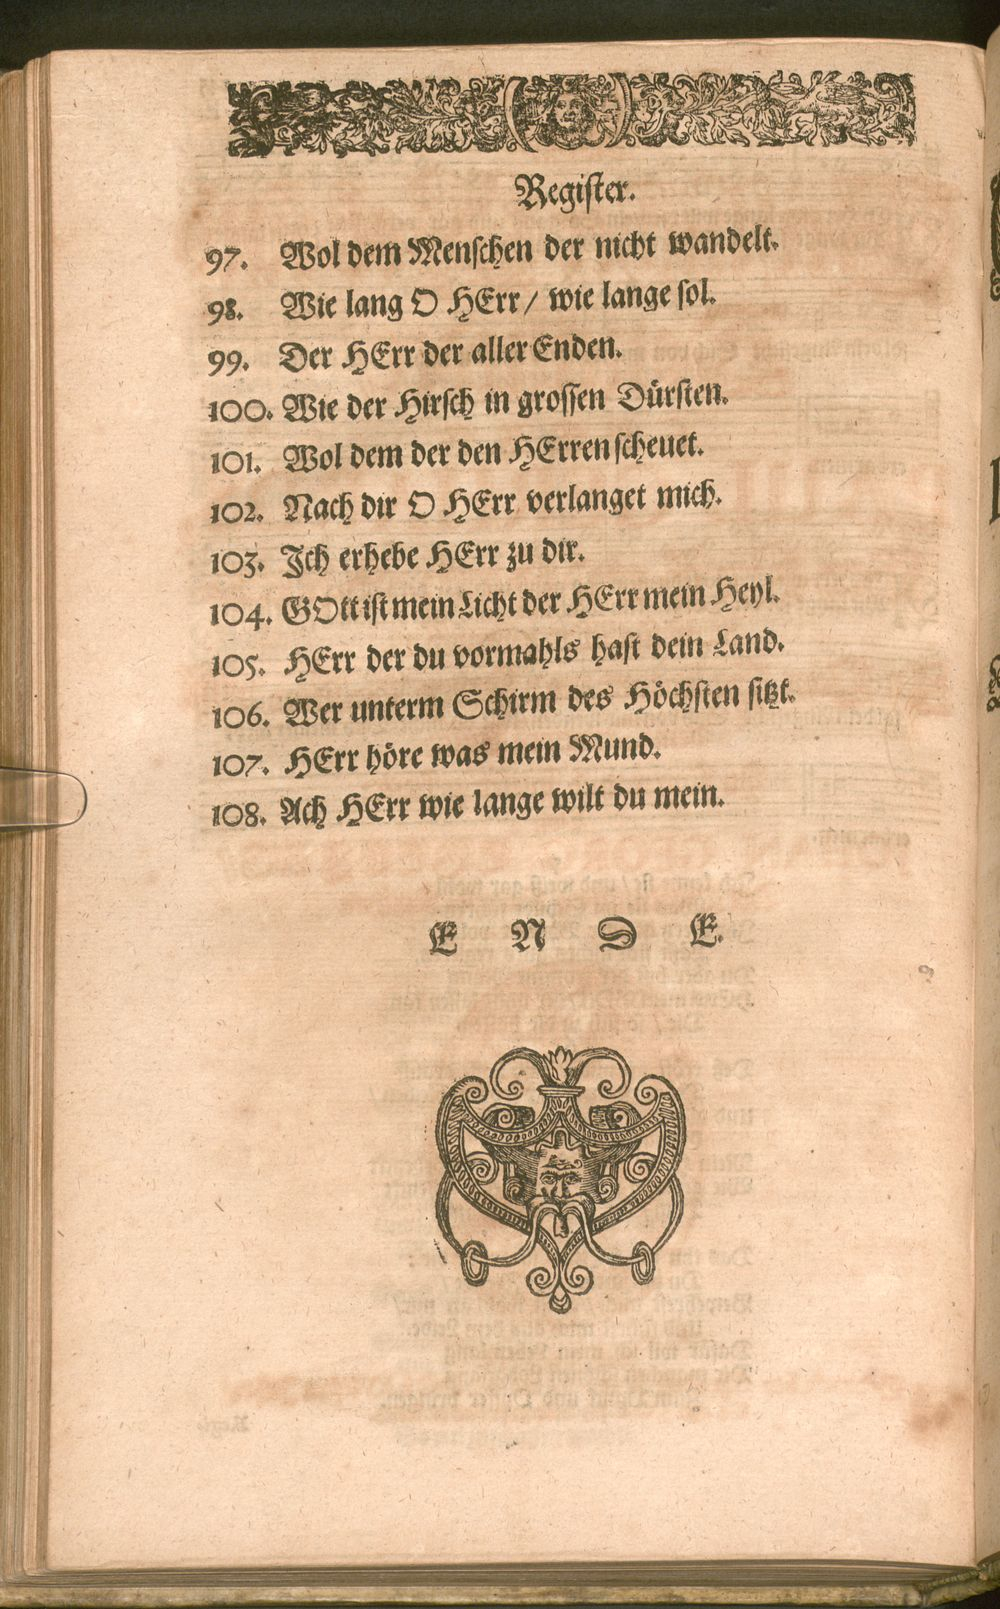 Regiſter.
97. Wol dem Menſchen der nicht wandelt.
98. Wie lang O HErr / wie lange ſol.
99. Der HErr der aller Enden.
100. Wie der Hirſch in groſſen Dürſten.
101. Wol dem der den HErren ſcheuet.
102. Nach dir O HErr verlanget mich.
103. Ich erhebe HErr zu dir.
104. GOtt iſt mein Licht der HErr mein Heyl.
105. HErr der du vormahls haſt dein Land.
106. Wer unterm Schirm des Höchſten ſitzt.
107. HErr höre was mein Mund.
108. Ach HErr wie lange wilt du mein.
E N D E.